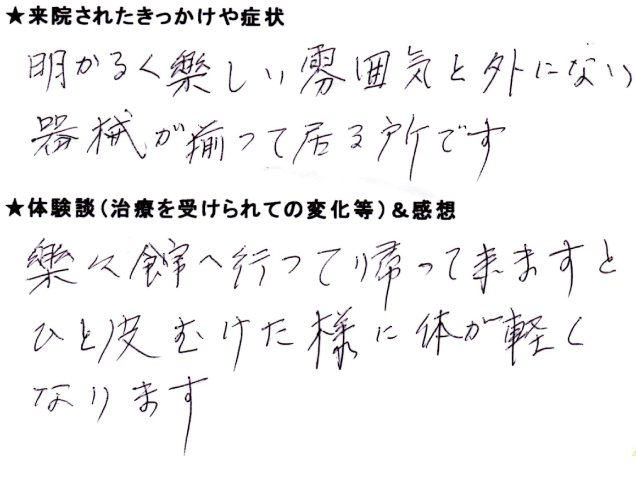 ★来院されたきっかけや症状
明かるく樂しい雰囲気と外にない
器械が揃って居る所です
★体験談(治療を受けられての変化等)&感想
樂々館へ行って帰って来ますと
ひと皮むけた様に体が軽く
なります